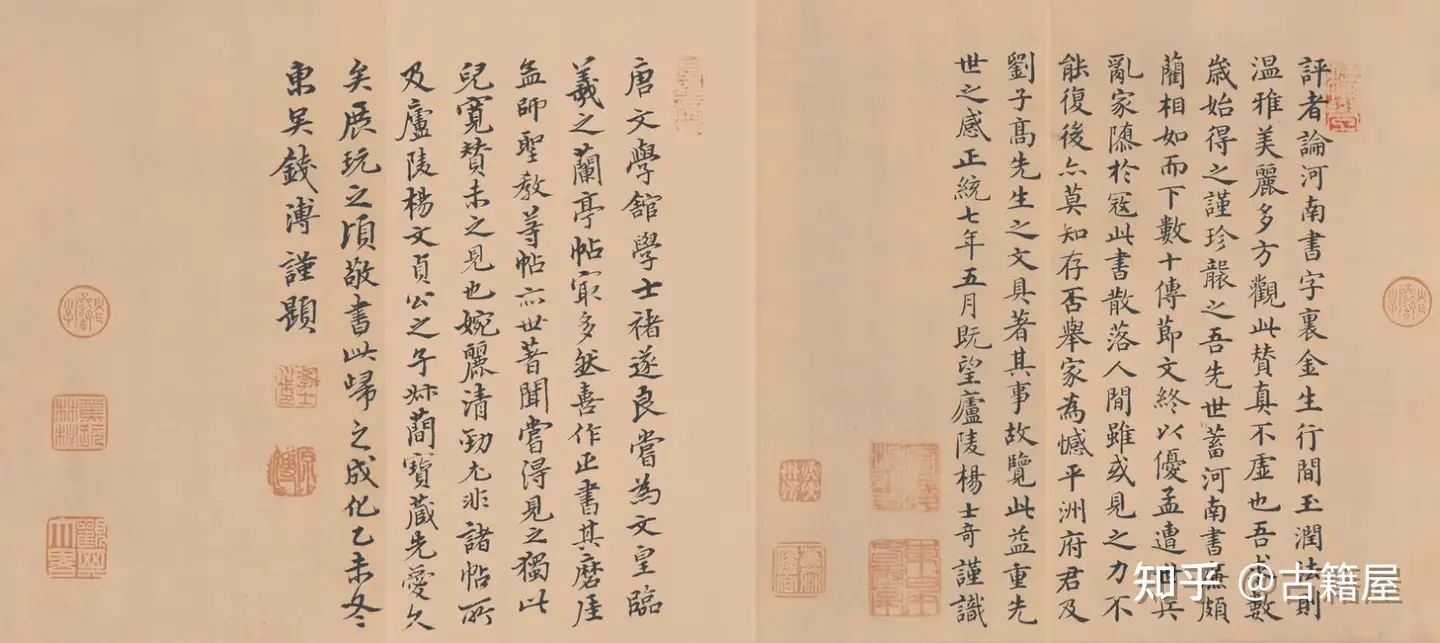 評者論河南書字裏金生行間玉潤法則
温雅美麗多方觀此賛真不虚也吾求數
歳始得之謹珍襲之吾先世蓄河南書廉頗
藺相如而下數十傳節文終以優孟遭世兵
亂家隳於寇此書散落人間雖或見之力不
能復後亦莫知存否舉家為憾平洲府君及
劉子髙先生之文具著其事故覽此益重先
世之感正統七年五月既望廬陵楊士竒謹識
唐文學舘學士褚遂良嘗為文皇臨
羲之蘭亭帖㝡多然喜作正書其磨厓
孟師聖教等帖亦世著聞嘗得見之獨此
兒寛賛未之見也婉麗清勁尤非諸帖所
及廬陵楊文貞公之子叔蕳寶藏先愛久
矣展玩之頃敬書此歸之成化乙未冬
東吳錢溥謹題
知乎 @古籍屋